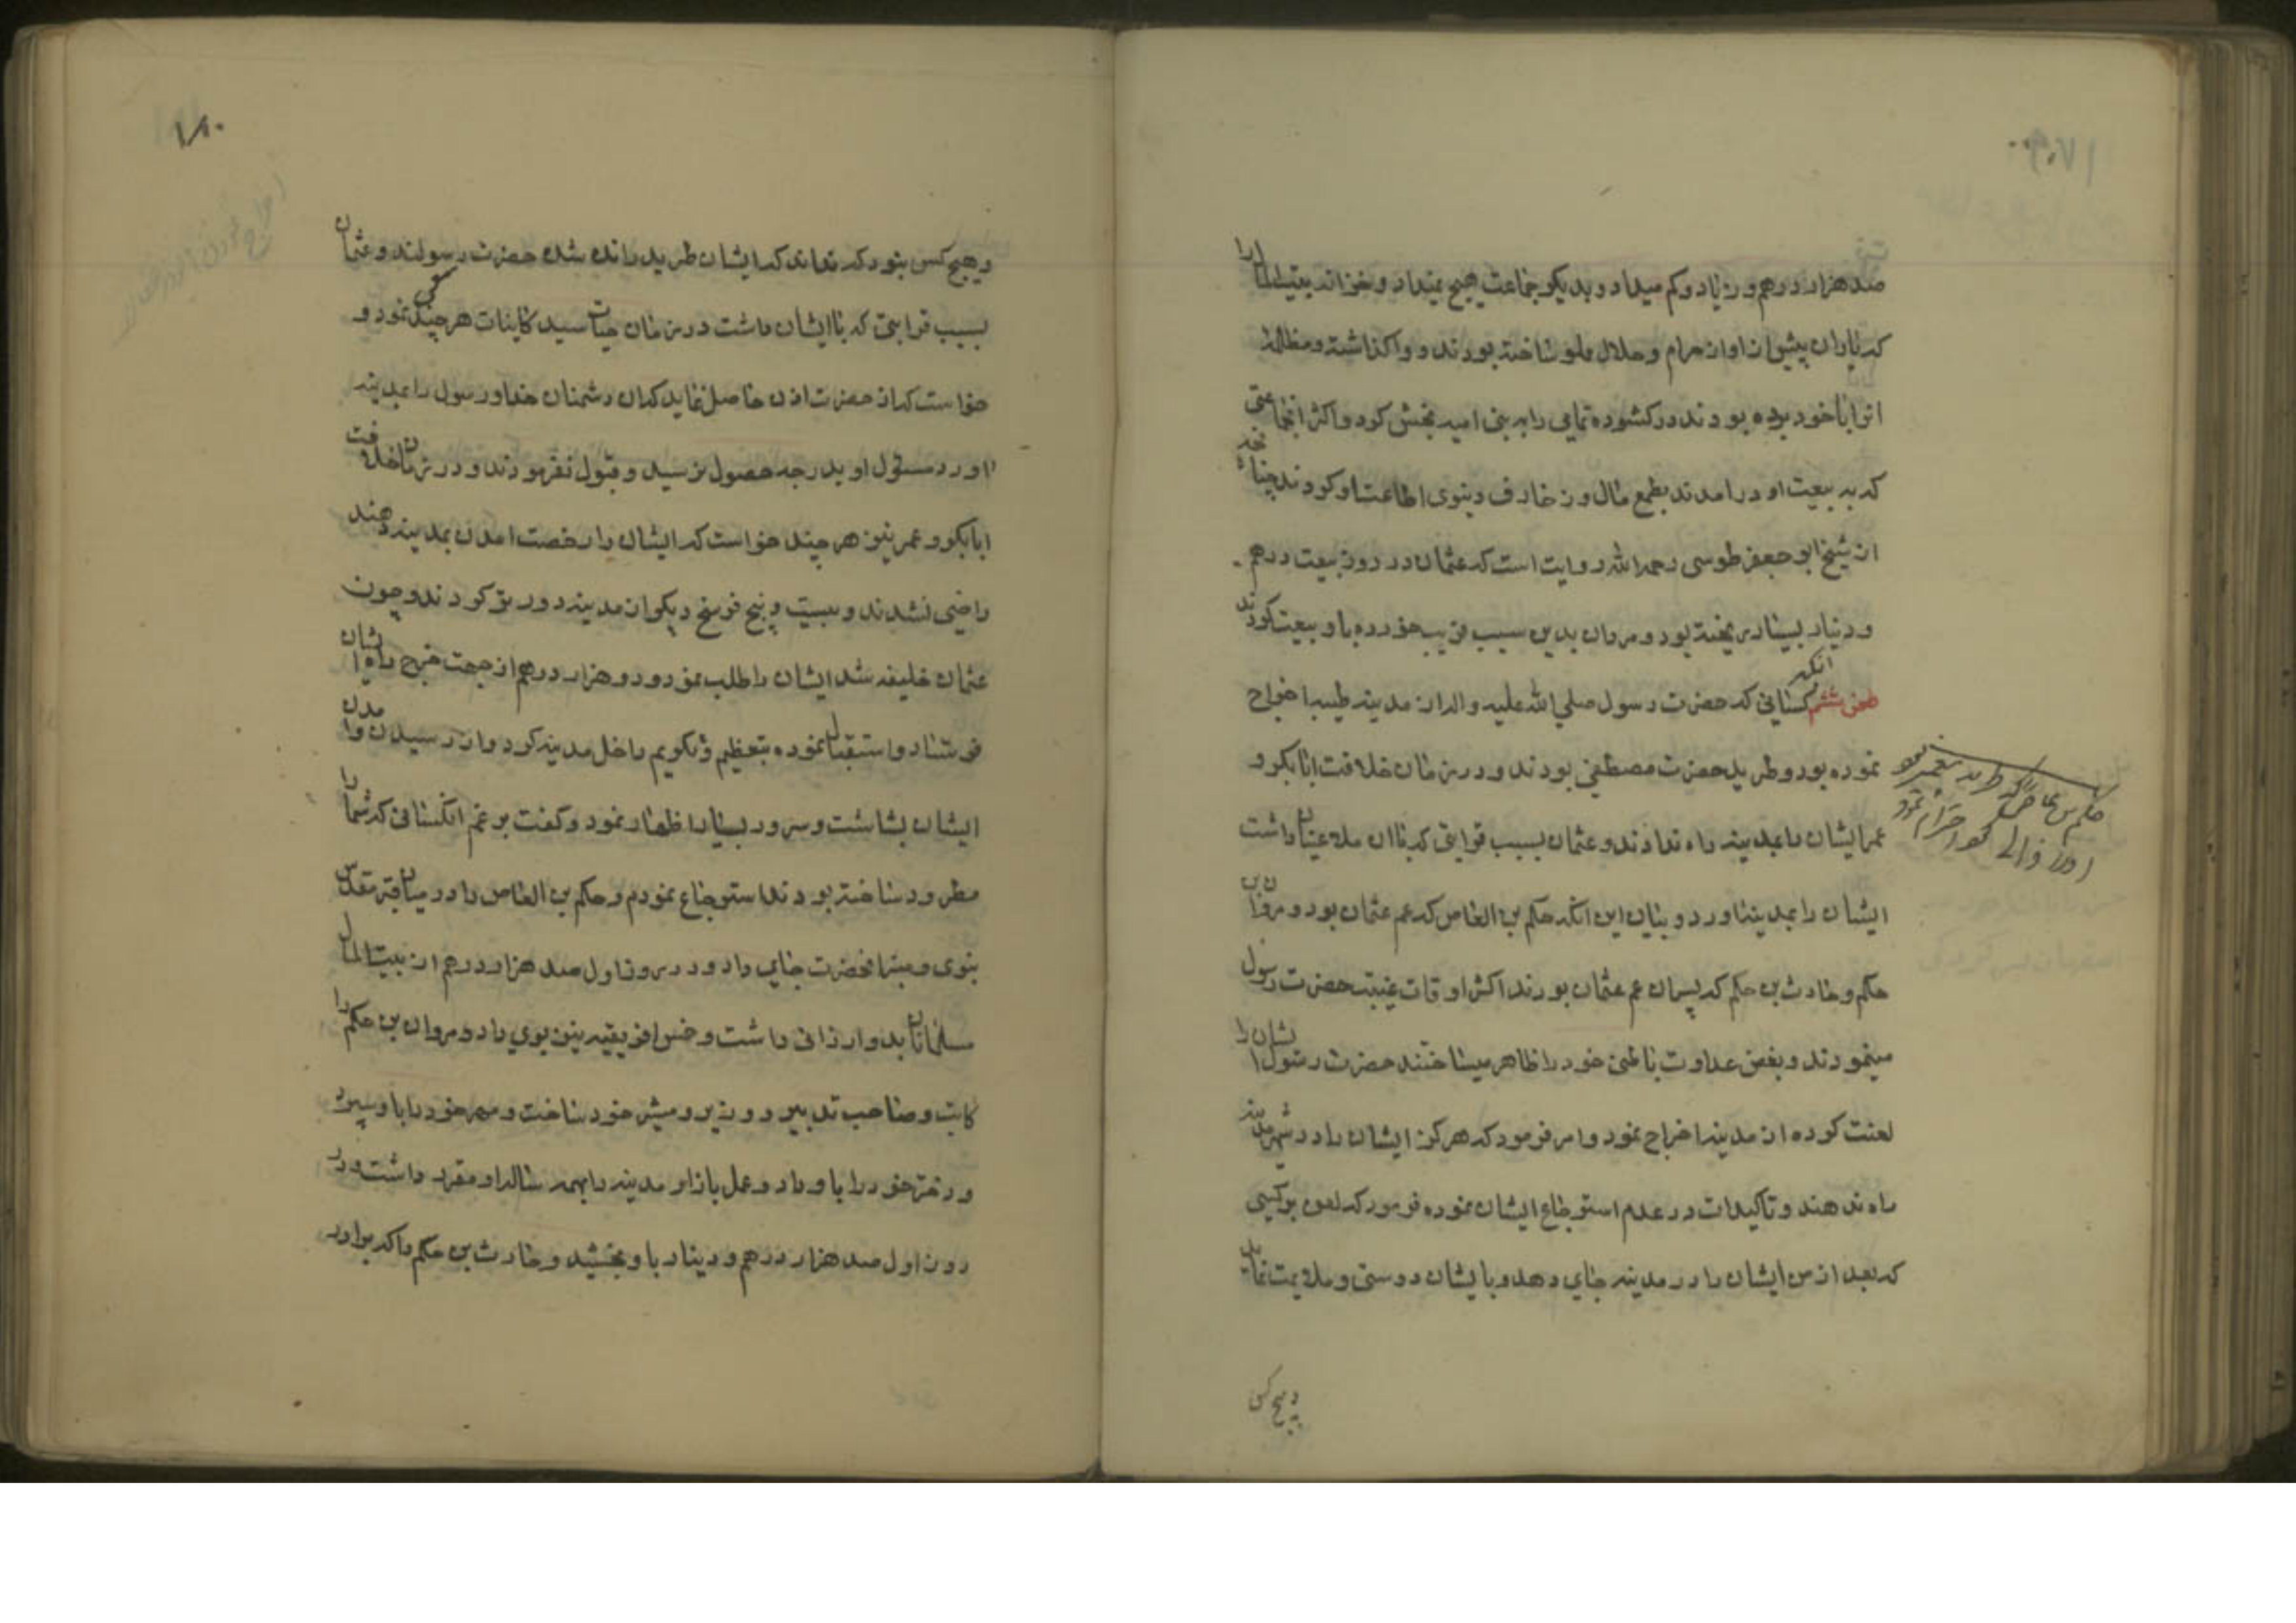 صد هزار درهم و زیاد و کم میداد و بدیکر جماعت هیچ نمیداد و بخزانه بیت المال را
که یاران پیشوا از حرام و حلال مملو ساخته بودند و واکذاشته و مظالم
انرا با خود برده بودند در کشوده تمامی را به بنی امیه بخش کرد و اکثر انجماعتی
که به بیعت او درامدند بطمع مال و زخارف دنیوی اطاعت او کردند چنانچه
از شیخ ابو جعفر طوسی رحمه الله روایت است که عثمان در روز بیعت درهم
و دینار بسیار ریخته بود و مردمان بدین سبب فریب خورده باو بیعت کردند
طعن ششم انکه کسانی که حضرت رسول صلی الله علیه و اله از مدینه طیبه اخراج
نموده بود و طرید حضرت مصطفی بودند و در زمان خلافت ابابکر و
عمر ایشان را بمدینه راه ندادند و عثمان بسبب قرابتی که با ان ملاعینان داشت
ایشان را بمدینه اورد و بیان این انکه حکم بن العاص که عم عثمان بود و مروان بن
حکم و حارث بن حکم که پسران عم عثمان بودند اکثر اوقات غیبت حضرت رسول
مینمودند و بغض عداوت باطنی خود را ظاهر میساختند حضرت رسول ایشان را
لعنت کرده از مدینه اخراج نمود و امر فرمود که هرکز ایشان را در شهر مدینه
راه ندهند و تاکیدات در عدم استرجاع ایشان نموده فرمود که لعن بر کسی
که بعد از من ایشان را در مدینه جای دهد و با ایشان دوستی و ملایمت نماید
و هیچ کس
حکم بن عاص که
۱۸۰
و هیچ کس نبود که نداند که ایشان طرید رانده شده حضرت رسولند و عثمان
بسبب قرابتی که با ایشان داشت در زمان حیات سید کاینات هر چند سعی نمود و
خواست که از حضرت اذن حاصل نماید که ان دشمنان خدا و رسول را بمدینه
اورد مسئول او بدرجه حصول نرسید و قبول نفرمودند و در زمان خلافت
ابابکر و عمر نیز هر چند خواست که ایشان را رخصت امدن بمدینه دهند
راضی نشدند و بیست و پنج فرسخ دیکر از مدینه دورتر کردند و چون
عثمان خلیفه شد ایشان را طلب نمود و دو هزار درهم از جهت خرج راه ایشان
فرستاد و استقبال نموده بتعظیم و تکریم داخل مدینه کرد و از رسیدن و امدن
ایشان بشاشت و سرور بسیار اظهار نمود و کفت بر غم انکسانی که شما را
مطرود ساخته بودند استرجاع نمودم و حکم بن العاص را در میان قبر مقدس
نبوی و منبر انحضرت جای داد و در روز اول صد هزار درهم از بیت المال
مسلمانان بدو ارزانی داشت و خمس افریقیه نیز بوی داد و مروان بن حکم را
کاتب و صاحب تدبیر و وزیر و مشیر خود ساخت و مهر خود را باو سپرد
و دختر خود را باو داد و عمل بازار مدینه را بهمه ساله او مقرر داشت و در
روز اول صد هزار درهم و دینار باو بخشید و حارث بن حکم را که برادر